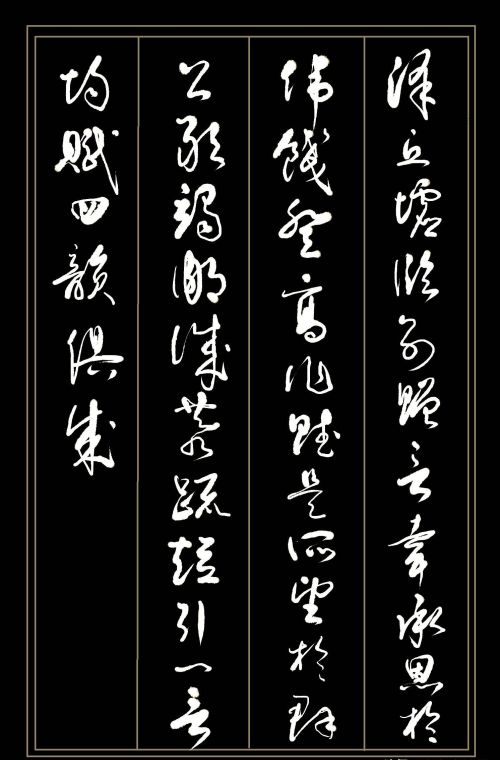 澤丘墟臨別贈言幸承恩於
偉餞登高作賦是所望於群
公敢竭鄙誠恭疏短引一言
均賦四韻俱成